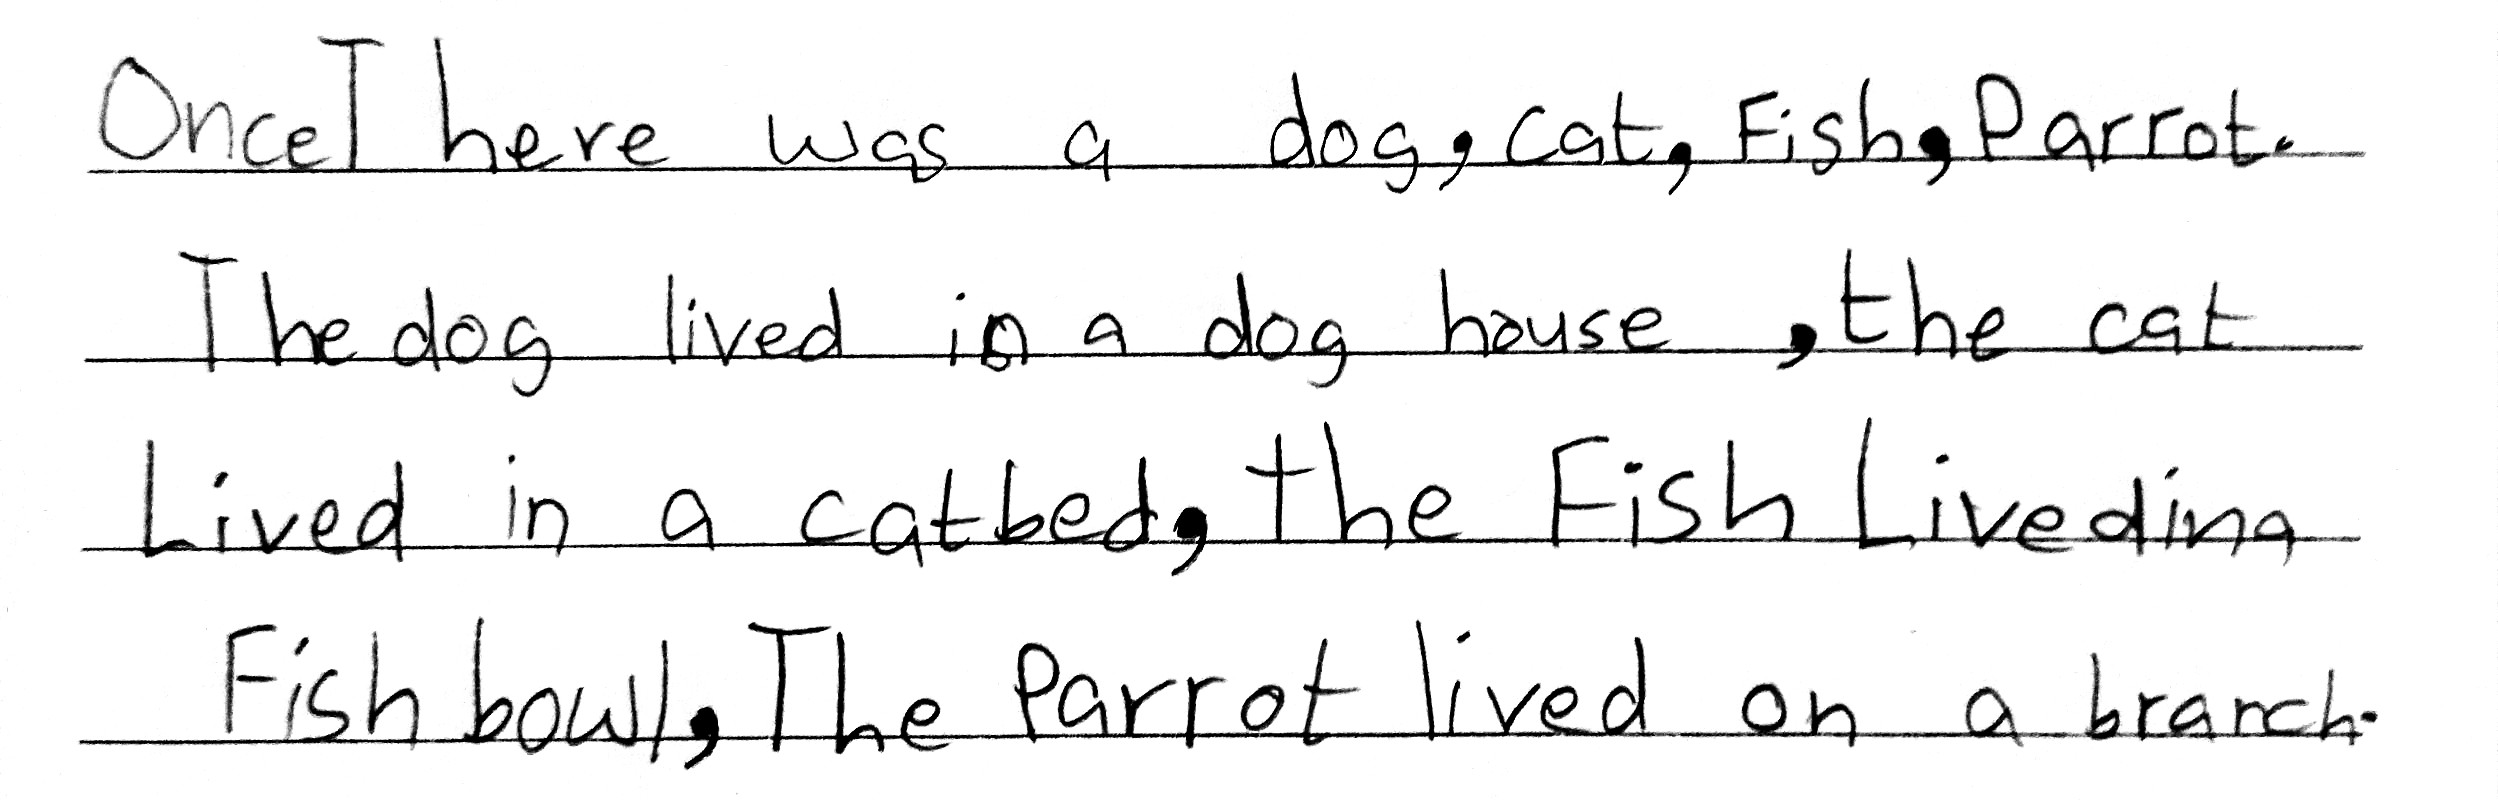 Once There was a dog, cat, Fish, Parrot.
The dog lived in a dog house, the cat
Lived in a catbed, the Fish Lived in a
Fish bowl, The Parrot lived on a branch.